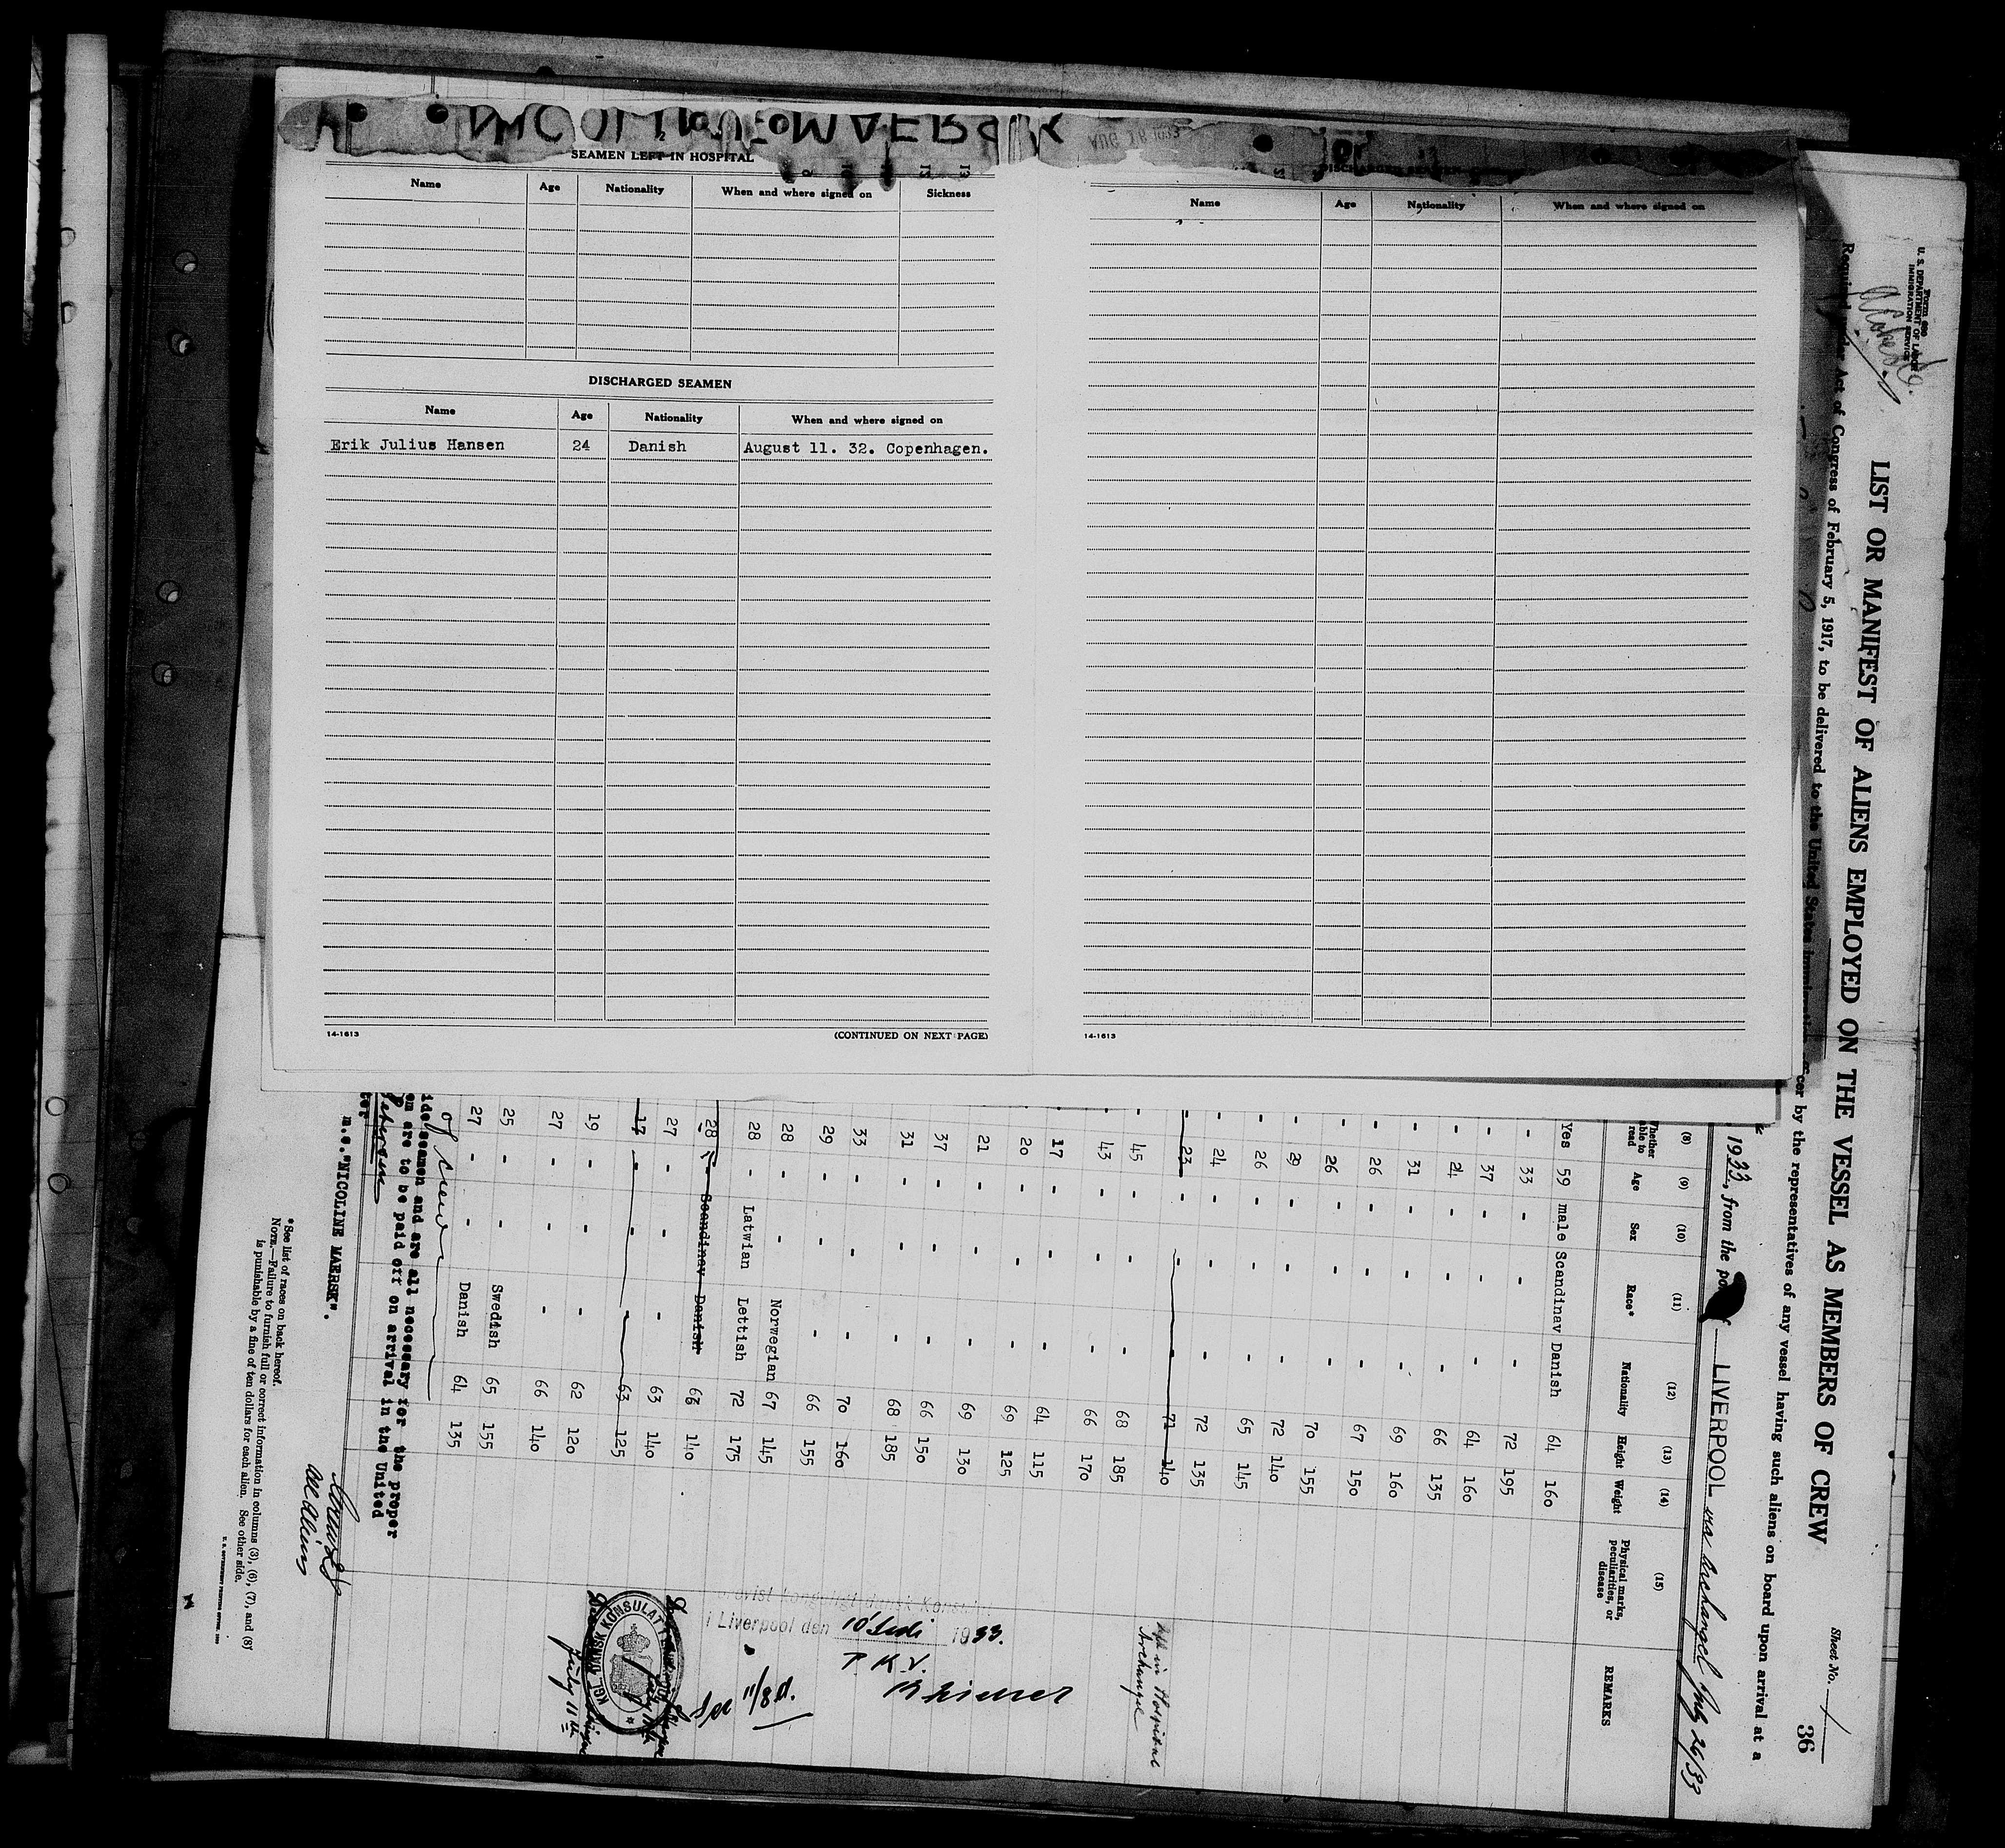 NICOLINE MAERSK
AUG 18 1933
SEAMEN LEFT IN HOSPITAL
Name Age Nationality When and where signed on Sickness
DISCHARGED SEAMEN
Name Age Nationality When and where signed on
Erik Julius Hansen 24 Danish August 11. 32. Copenhagen.
14-1613 (CONTINUED ON NEXT PAGE)
DISCHARGED SEAMEN
Name Age Nationality When and where signed on
14-1613
Form 680
U. S. DEPARTMENT OF LABOR
IMMIGRATION SERVICE
Sheet No. 1
36
LIST OR MANIFEST OF ALIENS EMPLOYED ON THE VESSEL AS MEMBERS OF CREW
Required under Act of Congress of February 5, 1917, to be delivered to the United States Immigration Officer by the representatives of any vessel having such aliens on board upon arrival at a
1933, from the port of LIVERPOOL via Archangel July 26/33
(8) (9) (10) (11) (12) (13) (14) (15)
Whether able to read Age Sex Race* Nationality Height Weight Physical marks, peculiarities, or disease REMARKS
Yes 59 male Scandinav Danish 64 160
- 33 - - - 72 195
- 37 - - - 64 160
- 24 - - - 66 135
- 31 - - - 69 160
- 26 - - - 67 150
- 26 - - - 70 155
- 29 - - - 72 140
- 26 - - - 65 145
- 24 - - - 72 135
- 23 - - - 71 140 left in Hospital Archangel
45 - - - 68 185
43 - - - 66 170
17 - - - 64 115
20 - - - 69 125
21 - - - 69 130
37 - - - 66 150
31 - - - 68 185
33 - - - 70 160
29 - - - 66 155
28 - - Norwegian 67 145
28 - Latwian Lettish 72 175
28 - Scandinav Danish 63 140
27 - - - 63 140
17 - - - 63 125
19 - - - 62 120
27 - - - 66 140
25 - - Swedish 65 155
27 - - Danish 64 135
of crew
i Liverpool den 10 Juli 1933.
P.K.V.
KGL. DANSK KONSULAT
July 11th
seamen and are all necessary for the proper
en are to be paid off on arrival in the United
m.s."NICOLINE MAERSK".
*See list of races on back hereof.
NOTE.—Failure to furnish full or correct information in columns (3), (6), (7), and (8)
is punishable by a fine of ten dollars for each alien. See other side.